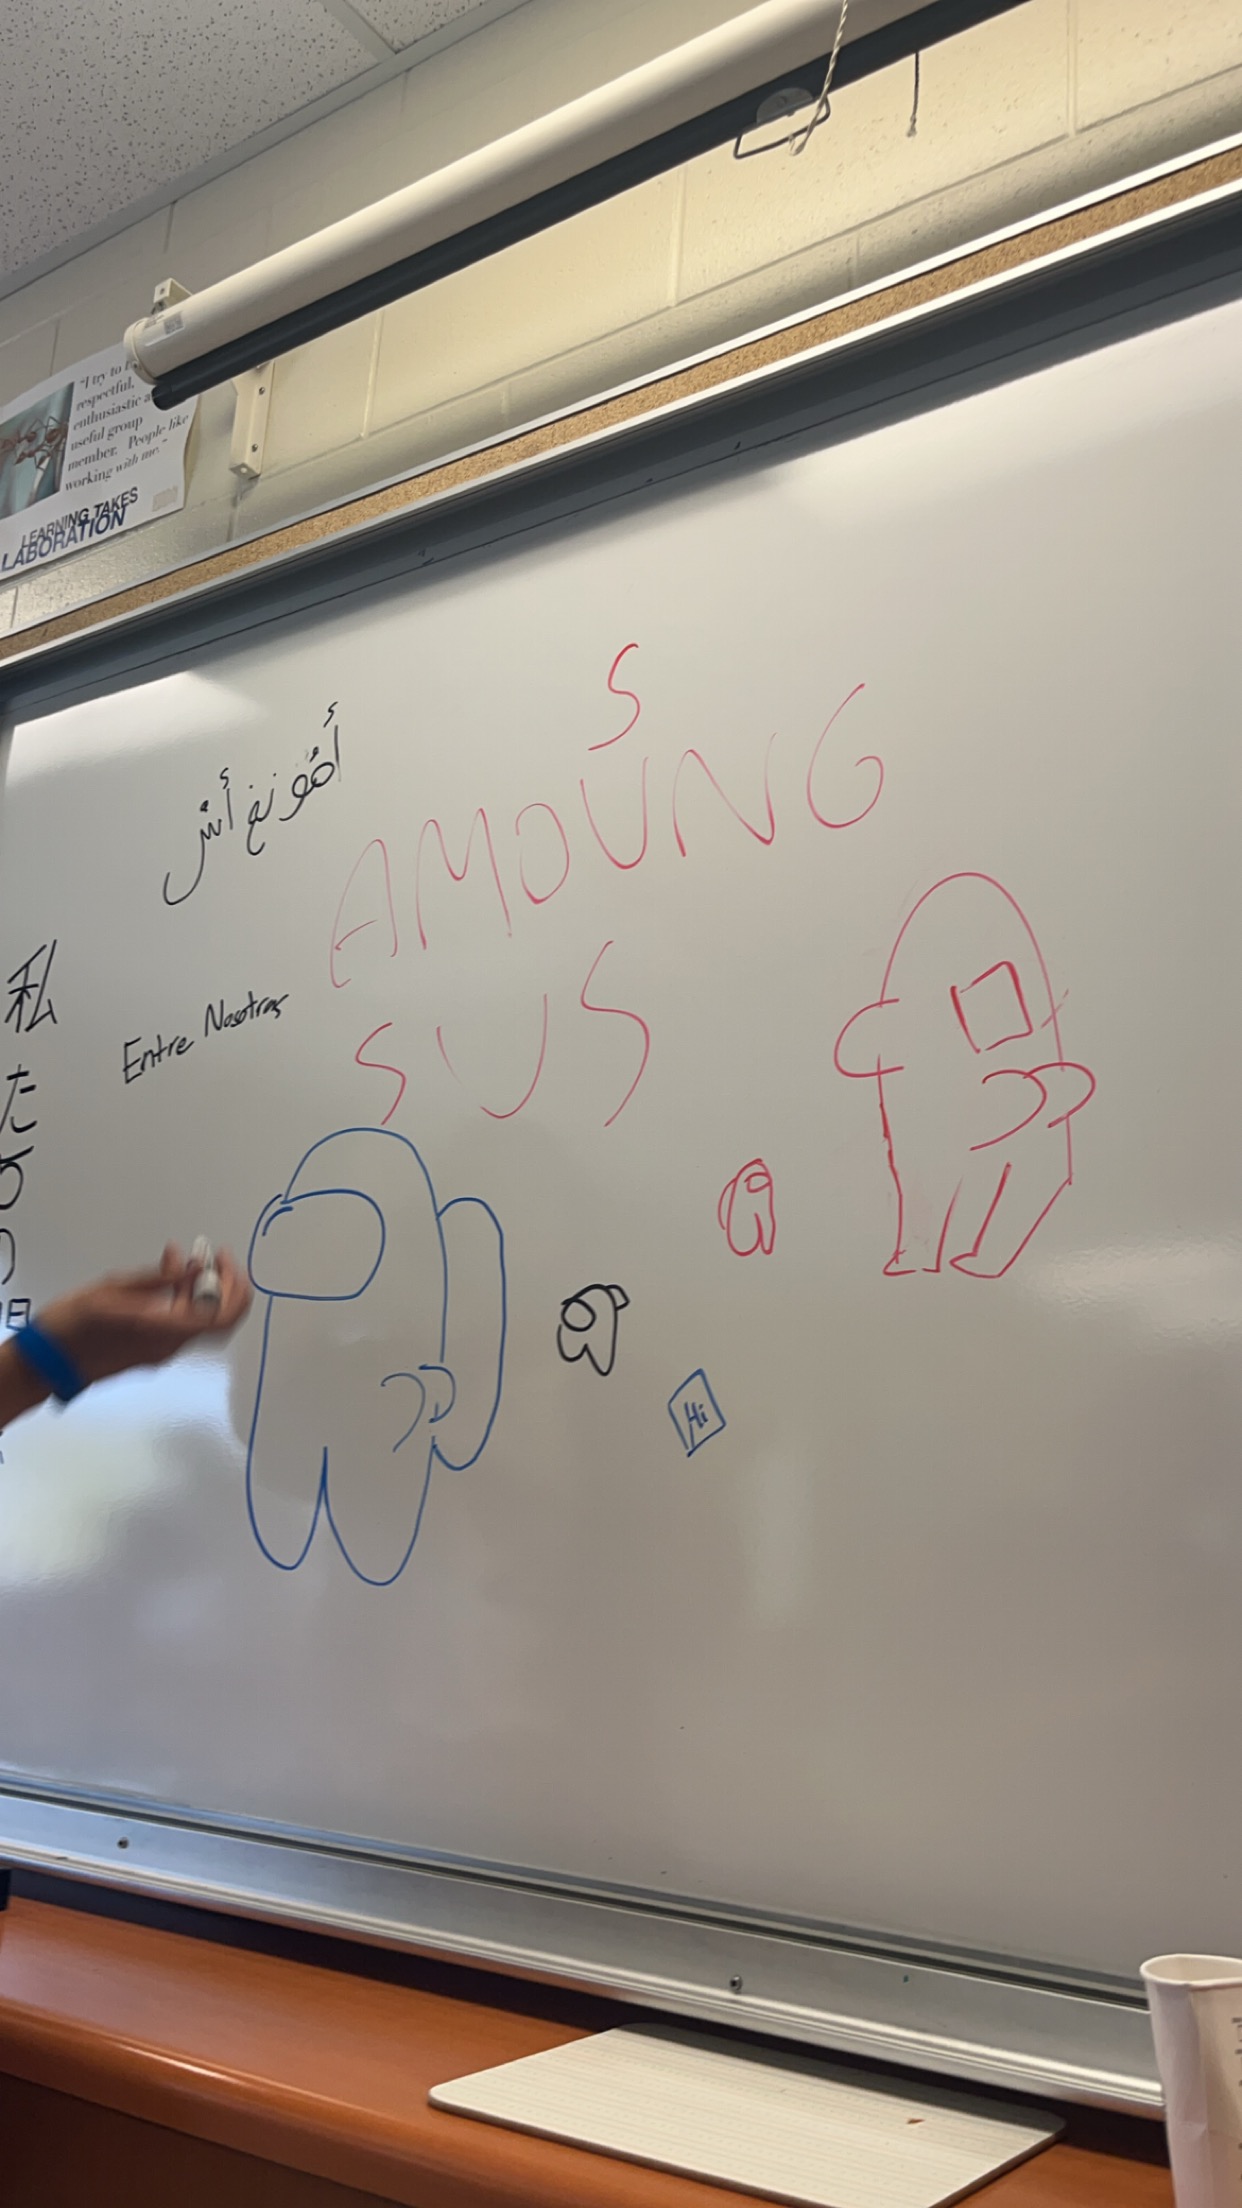 "I try to
respectful,
enthusiastic a
useful group
member. People like
working with me."
LEARNING TAKES
LABORATION
أمُونغ أسْ
S
AMOUNG
SUS
Entre Nosotros
私
た
Hi